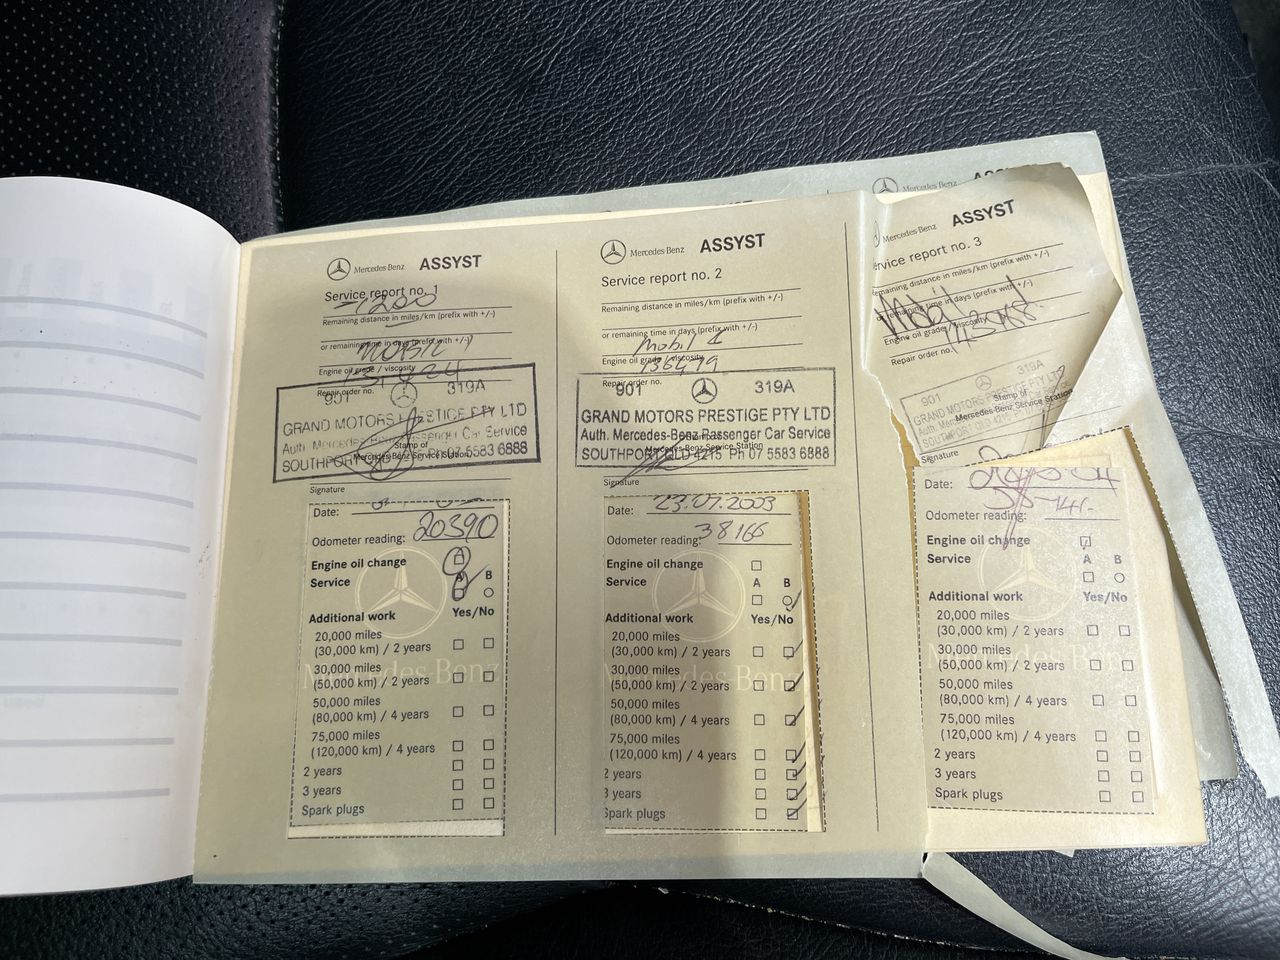 Mercedes-Benz ASSYST
Service report no. 1
-1200
Remaining distance in miles/km (prefix with +/-)
or remaining time in days (prefix with +/-)
MOBIL
Engine oil grade / viscosity
131424
Repair order no.
901 319A
GRAND MOTORS PRESTIGE PTY LTD
Auth. Mercedes-Benz Passenger Car Service
Stamp of
Mercedes-Benz Service Station
SOUTHPORT QLD Ph 07 5583 6888
Signature
Date:
Odometer reading: 20390
Engine oil change
A B
Service
Additional work Yes/No
20,000 miles
(30,000 km) / 2 years
30,000 miles
(50,000 km) / 2 years
50,000 miles
(80,000 km) / 4 years
75,000 miles
(120,000 km) / 4 years
2 years
3 years
Spark plugs
Mercedes-Benz
Mercedes-Benz ASSYST
Service report no. 2
Remaining distance in miles/km (prefix with +/-)
or remaining time in days (prefix with +/-)
Mobil 1
Engine oil grade / viscosity
136479
Repair order no.
901 319A
GRAND MOTORS PRESTIGE PTY LTD
Auth. Mercedes-Benz Passenger Car Service
Mercedes-Benz Service Station
SOUTHPORT QLD 4215 PH 07 5583 6888
Signature
Date: 23.07.2003
Odometer reading: 38166
Engine oil change
A B
Service
Additional work Yes/No
20,000 miles
(30,000 km) / 2 years
30,000 miles
(50,000 km) / 2 years
50,000 miles
(80,000 km) / 4 years
75,000 miles
(120,000 km) / 4 years
2 years
3 years
Spark plugs
Mercedes-Benz
Mercedes-Benz
Mercedes-Benz ASSYST
Service report no. 3
Remaining distance in miles/km (prefix with +/-)
or remaining time in days (prefix with +/-)
Mobil
Engine oil grade / viscosity
Repair order no.
901 319A
GRAND MOTORS PRESTIGE PTY LTD
Stamp of
Mercedes-Benz Service Station
SOUTHPORT QLD 4215
Signature
Date:
Odometer reading:
Engine oil change
A B
Service
Additional work Yes/No
20,000 miles
(30,000 km) / 2 years
30,000 miles
(50,000 km) / 2 years
50,000 miles
(80,000 km) / 4 years
75,000 miles
(120,000 km) / 4 years
2 years
3 years
Spark plugs